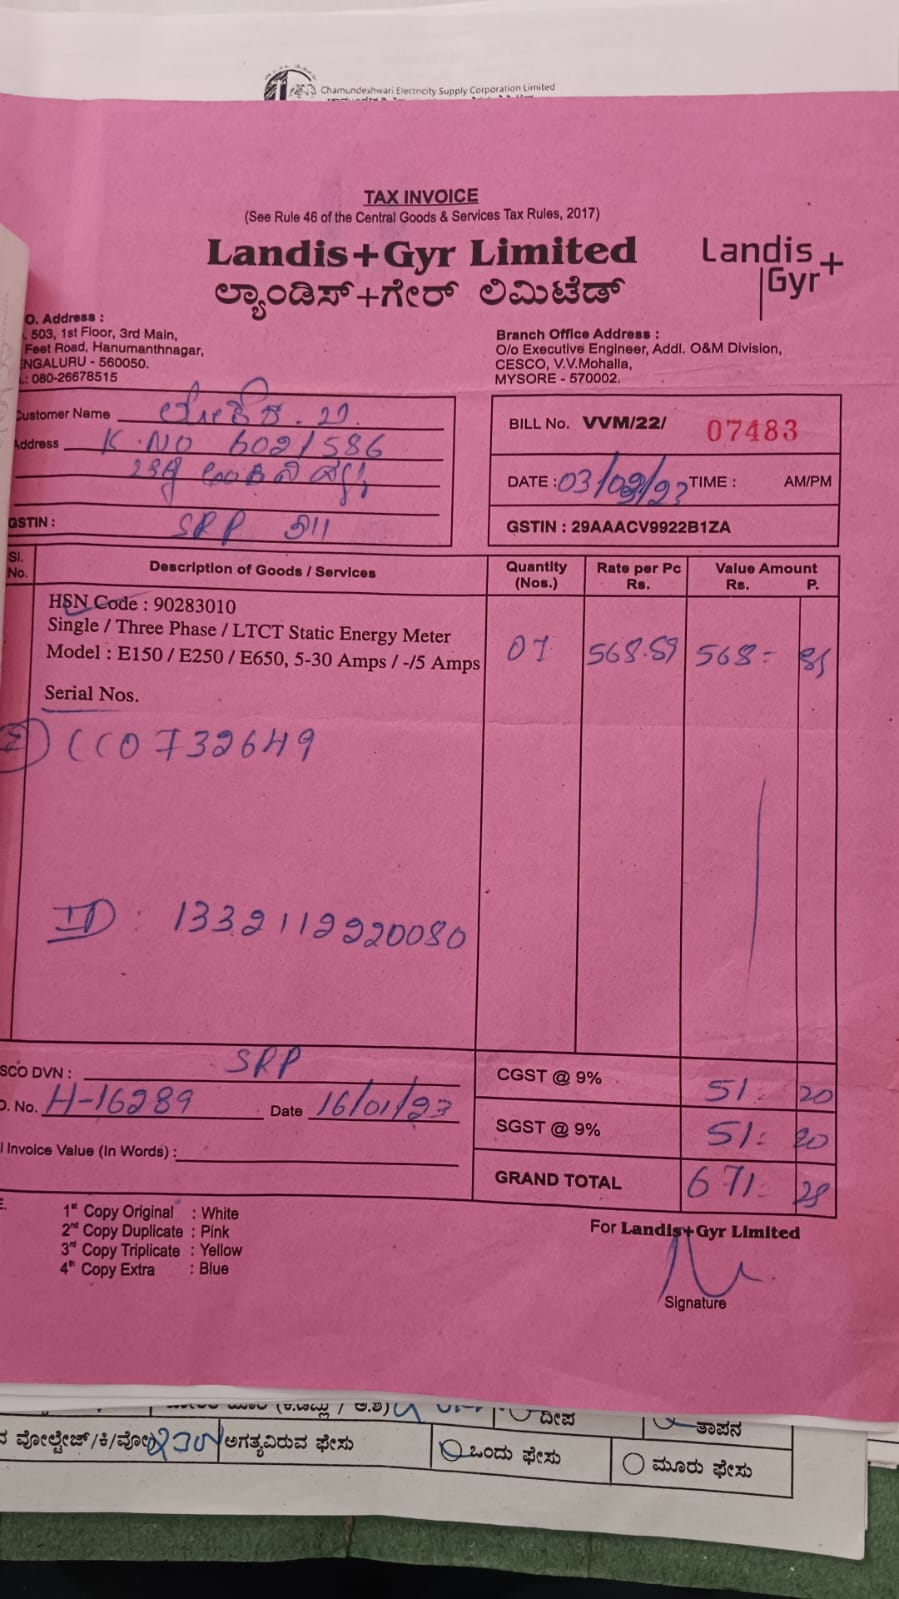 Chamundeshwari Electricity Supply Corporation Limited
TAX INVOICE
(See Rule 46 of the Central Goods & Services Tax Rules, 2017)
Landis+Gyr Limited
ಲ್ಯಾಂಡಿಸ್+ಗೇರ್ ಲಿಮಿಟೆಡ್
Landis
Gyr+
O. Address :
503, 1st Floor, 3rd Main,
Feet Road, Hanumanthnagar,
NGALURU - 560050.
: 080-26678515
Branch Office Address :
O/o Executive Engineer, Addl. O&M Division,
CESCO, V.V.Mohalla,
MYSORE - 570002.
Customer Name
Address K.NO 6021/586
GSTIN : SRP
BILL No. VVM/22/ 07483
DATE : 03/02/23 TIME : AM/PM
GSTIN : 29AAACV9922B1ZA
Sl. No. Description of Goods / Services Quantity (Nos.) Rate per Pc Rs. Value Amount Rs. P.
HSN Code : 90283010
Single / Three Phase / LTCT Static Energy Meter
Model : E150 / E250 / E650, 5-30 Amps / -/5 Amps 01 568.89 568=
Serial Nos.
CC0732649
ID : 1332112220080
SCO DVN : SRP
CGST @ 9% 51. 20
O. No. H-16289 Date 16/01/23
SGST @ 9% 51: 20
l Invoice Value (In Words) :
GRAND TOTAL 671= 28
1st Copy Original : White
2nd Copy Duplicate : Pink
3rd Copy Triplicate : Yellow
4th Copy Extra : Blue
For Landis+Gyr Limited
Signature
ದೀಪ
ತಾಪನ
ವೋಲ್ಟೇಜ್/ಕಿ/ವೋ
ಅಗತ್ಯವಿರುವ ಫೇಸು
ಒಂದು ಫೇಸು
ಮೂರು ಫೇಸು